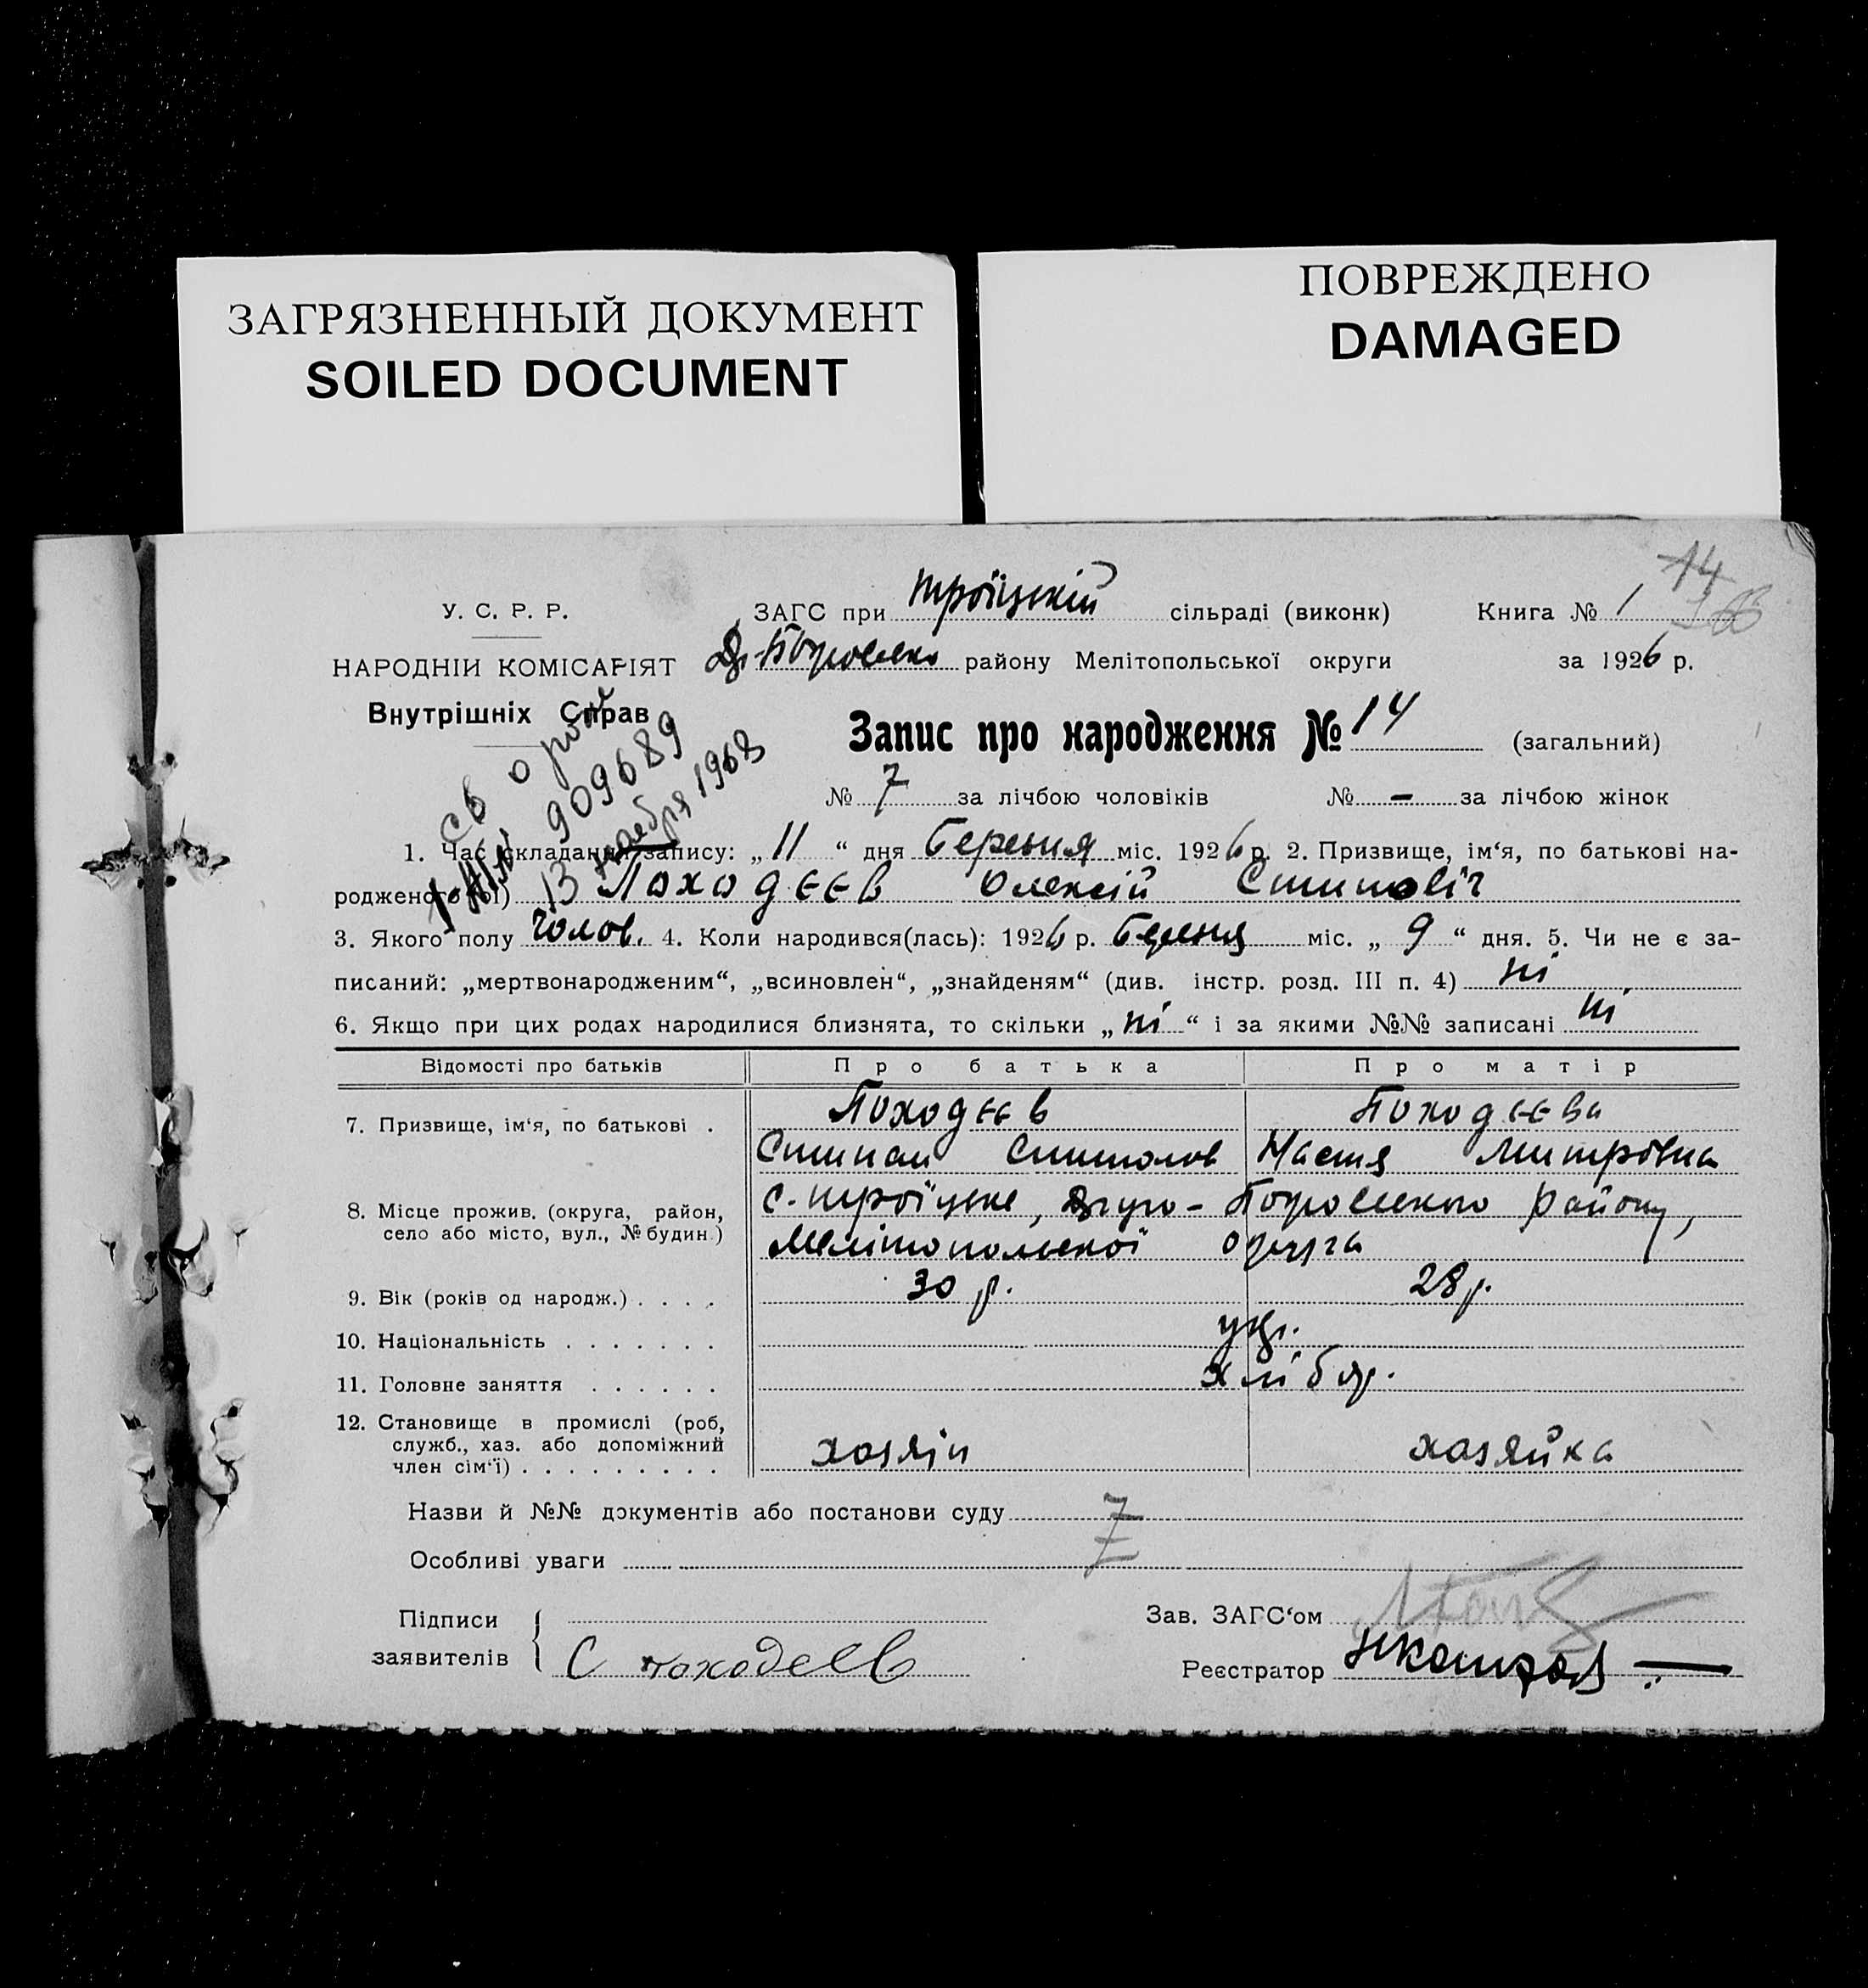 ЗАГРЯЗНЕННЫЙ ДОКУМЕНТ
SOILED DOCUMENT
ПОВРЕЖДЕНО
DAMAGED
14
У. С. Р. Р.
ЗАГС при Троїцькій сільраді (виконк) Книга № 1
НАРОДНІЙ КОМІСАРІЯТ
району Мелітопольської округи за 1926 р.
Внутрішніх Справ
Запис про народження № 14 (загальний)
№ 7 за лічбою чоловіків № – за лічбою жінок
св о рож
909689
13 ноября 1968
1. Час складання запису: „11“ дня Березня міс. 1926 р. 2. Призвище, ім‘я, по батькові на-
родженого(ої) Походєєв Олексій
3. Якого полу Чолов. 4. Коли народився(лась): 1926 р. Березня міс. „9“ дня. 5. Чи не є за-
писаний: „мертвонародженим“, „всиновлен“, „знайденям“ (див. інстр. розд. III п. 4) ні
6. Якщо при цих родах народилися близнята, то скільки „ні“ і за якими №№ записані ні
Відомості про батьків Про батька Про матір
7. Призвище, ім‘я, по батькові . Походєєв Походєєва
Степан Настя Митрівна
8. Місце прожив. (округа, район, с. Троїцьке, Друго- району,
село або місто, вул., № будин.) Мелітопольської округа
9. Вік (років од народж.) . . . . 30 р. 28 р.
10. Національність . . . . . . . укр.
11. Головне заняття . . . . . . хлібор.
12. Становище в промислі (роб,
служб., хаз. або допоміжний
член сім‘ї) . . . . . . . . . хозяїн хазяйка
Назви й №№ документів або постанови суду
Особливі уваги
Підписи
заявителів
С Походеев
Зав. ЗАГС‘ом
Реєстратор